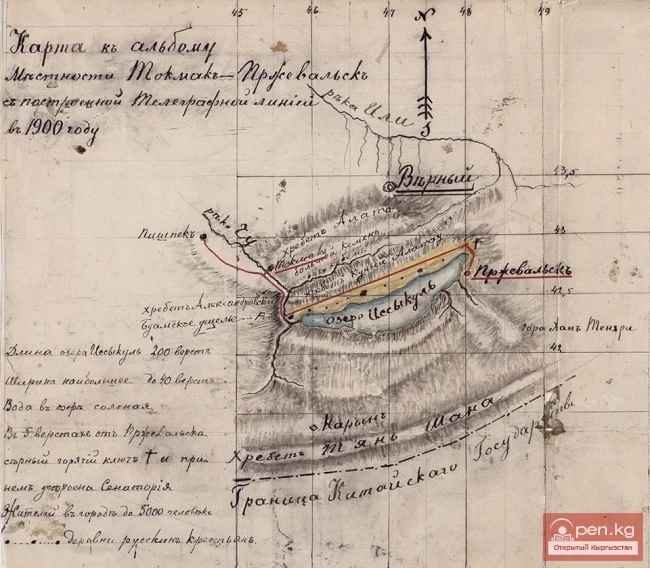 45 46 47 48 49
Карта къ альбому
Мѣстности Токмакъ — Пржевальскъ
съ построенной Телеграфной линіей
въ 1900 году
N
S
рѣка Или
43,5
Вѣрный
рѣка Чу
Пишпекъ
хребетъ Алатау
43
Токмакъ
большой Кемень
хребетъ Кунгей Алатау
Пржевальскъ
42,5
хребетъ Александровскій
Буамское ущелье
озеро Иссыкуль
гора Ханъ Тенгри
42
Длина озера Иссыкуль 200 верстъ
Ширина наибольшее до 40 верстъ
Вода въ озерѣ соленая
Въ 5 верстахъ отъ Пржевальска
сѣрный горячій ключъ † и при
немъ устроена Санаторія
Жителей въ городѣ до 5000 человѣкъ
деревни русскихъ крестьянъ.
Нарынъ
Хребетъ Тянь Шаня
Граница Китайскаго Государства
45 46 47 48
open.kg
Открытый Кыргызстан